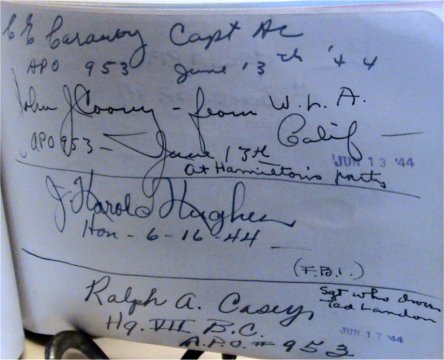 C E Caraway Capt AC
APO 953 June 13th '44
John J Cooney - from W.L.A.
Calif —
APO 953 — June 13th
JUN 13 '44
At Hamilton's party
J Harold Hughes
Hon - 6-16-44 —
(F.B.I.)
Sgt who drove
Tad Landon
Ralph A. Casey
Hq. VII B.C.
JUN 17 '44
A.P.O. # 953